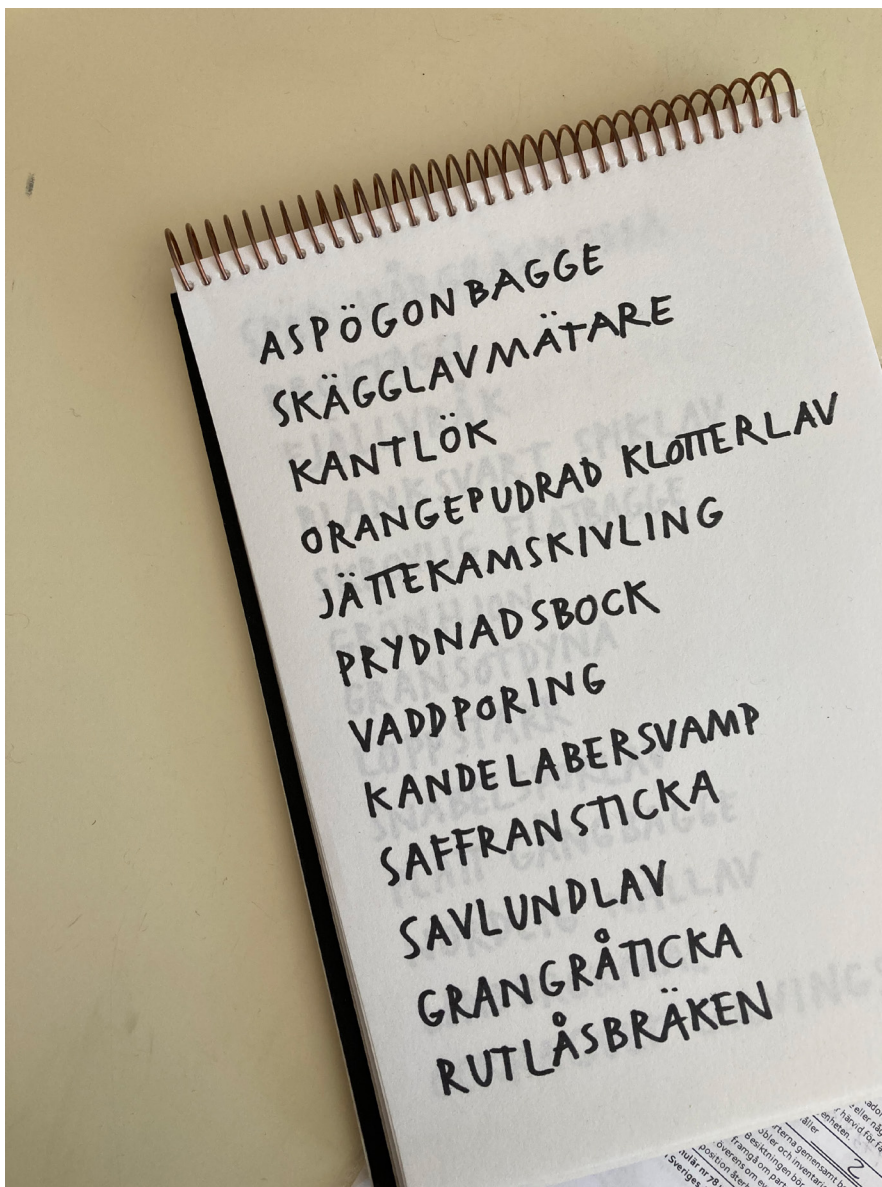 ASPÖGONBAGGE
SKÄGGLAVMÄTARE
KANTLÖK
ORANGEPUDRAD KLOTTERLAV
JÄTTEKAMSKIVLING
PRYDNADSBOCK
VADDPORING
KANDELABERSVAMP
SAFFRANSTICKA
SAVLUNDLAV
GRANGRÅTICKA
RUTLÅSBRÄKEN